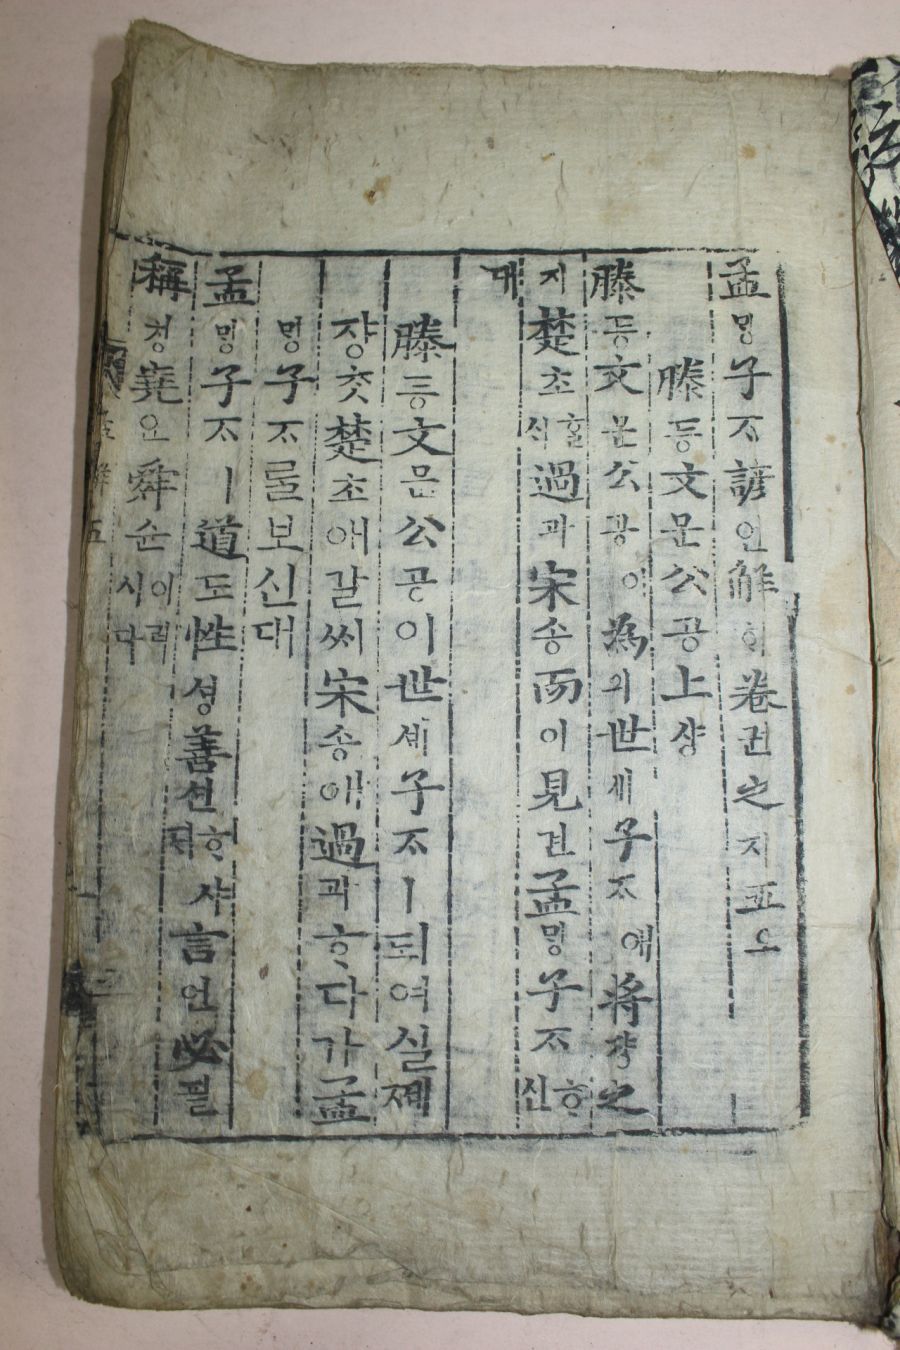 孟ᄆᆡᇰ子ᄌᆞ諺언解ᄒᆡ卷권之지五오
滕등文문公공上샹
滕등文문公공이為위世셰子ᄌᆞ애將쟝之
지楚초ᄒᆞᆯ식過과宋송而이見견孟ᄆᆡᇰ子ᄌᆞᄒᆞ신
대
滕등文문公공이世셰子ᄌᆞㅣ되여실제
쟝ᄎᆞᆺ楚초애갈ᄉᆡ宋송애過과ᄒᆞ다가孟
ᄆᆡᇰ子ᄌᆞᄅᆞᆯ보신대
孟ᄆᆡᇰ子ᄌᆞㅣ道도性셩善션ᄒᆞ샤ᄃᆡ言언必필
稱칭堯요舜슌이러시다